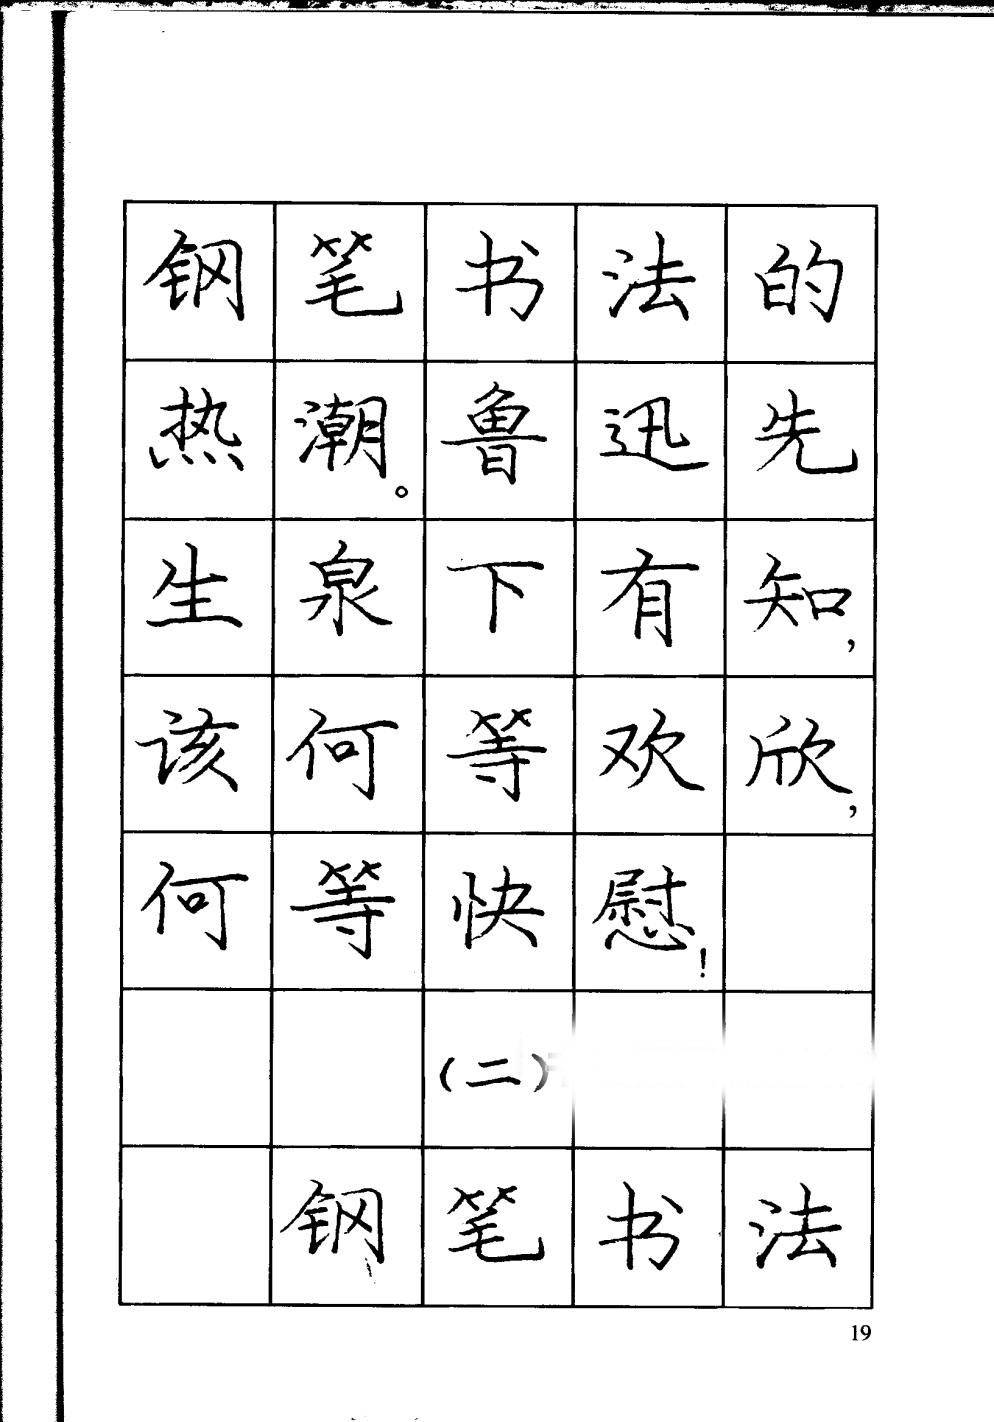 钢笔书法的
热潮。鲁迅先
生泉下有知,
该何等欢欣,
何等快慰!
(二)
钢笔书法
19